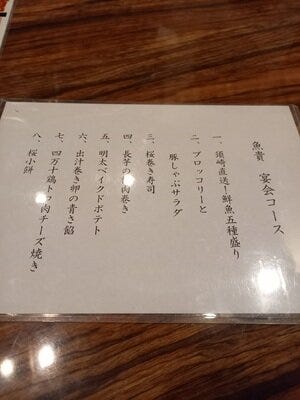 魚貴 宴会コース
一、須崎直送!鮮魚五種盛り
二、ブロッコリーと
豚しゃぶサラダ
三、桜巻き寿司
四、長芋の 肉巻き
五、明太ベイクドポテト
六、出汁巻き卵の青さ餡
七、四万十鶏トマ肉チーズ焼き
八、桜小餅